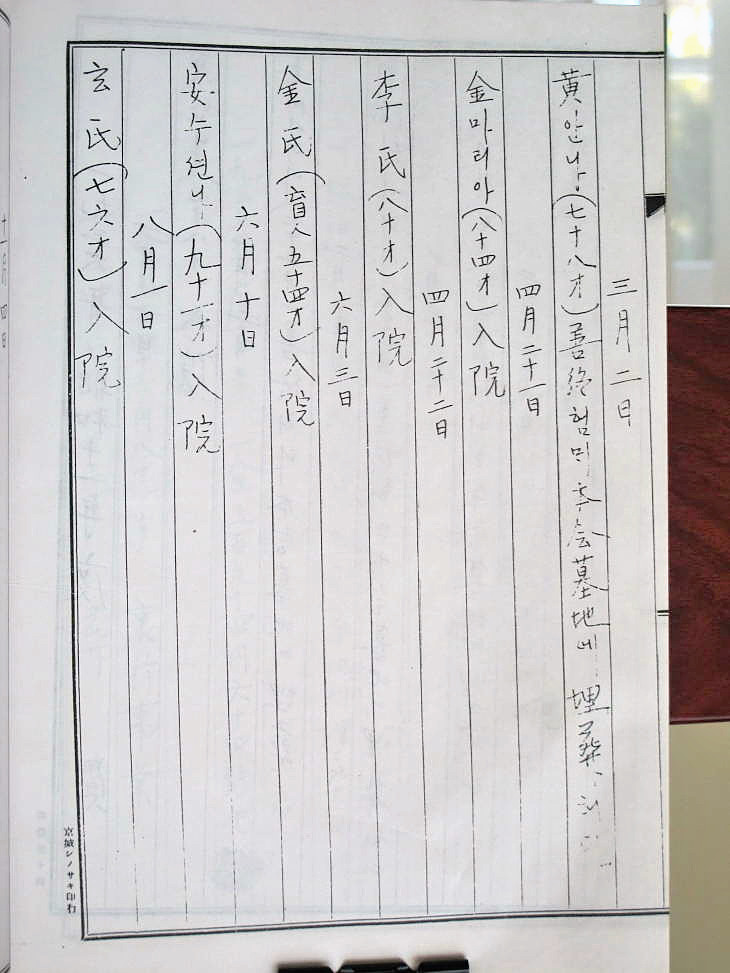 三月二日
黃안나(七十八才)善終험며 敎会墓地에 埋葬
四月二十一日
金마리아(八十四才)入院
四月二十二日
李氏(八十才)入院
六月三日
金氏(盲人五十四才)入院
六月十日
安수션나(九十一才)入院
八月一日
玄氏(七六才)入院
京城シノサキ印行
十一月四日